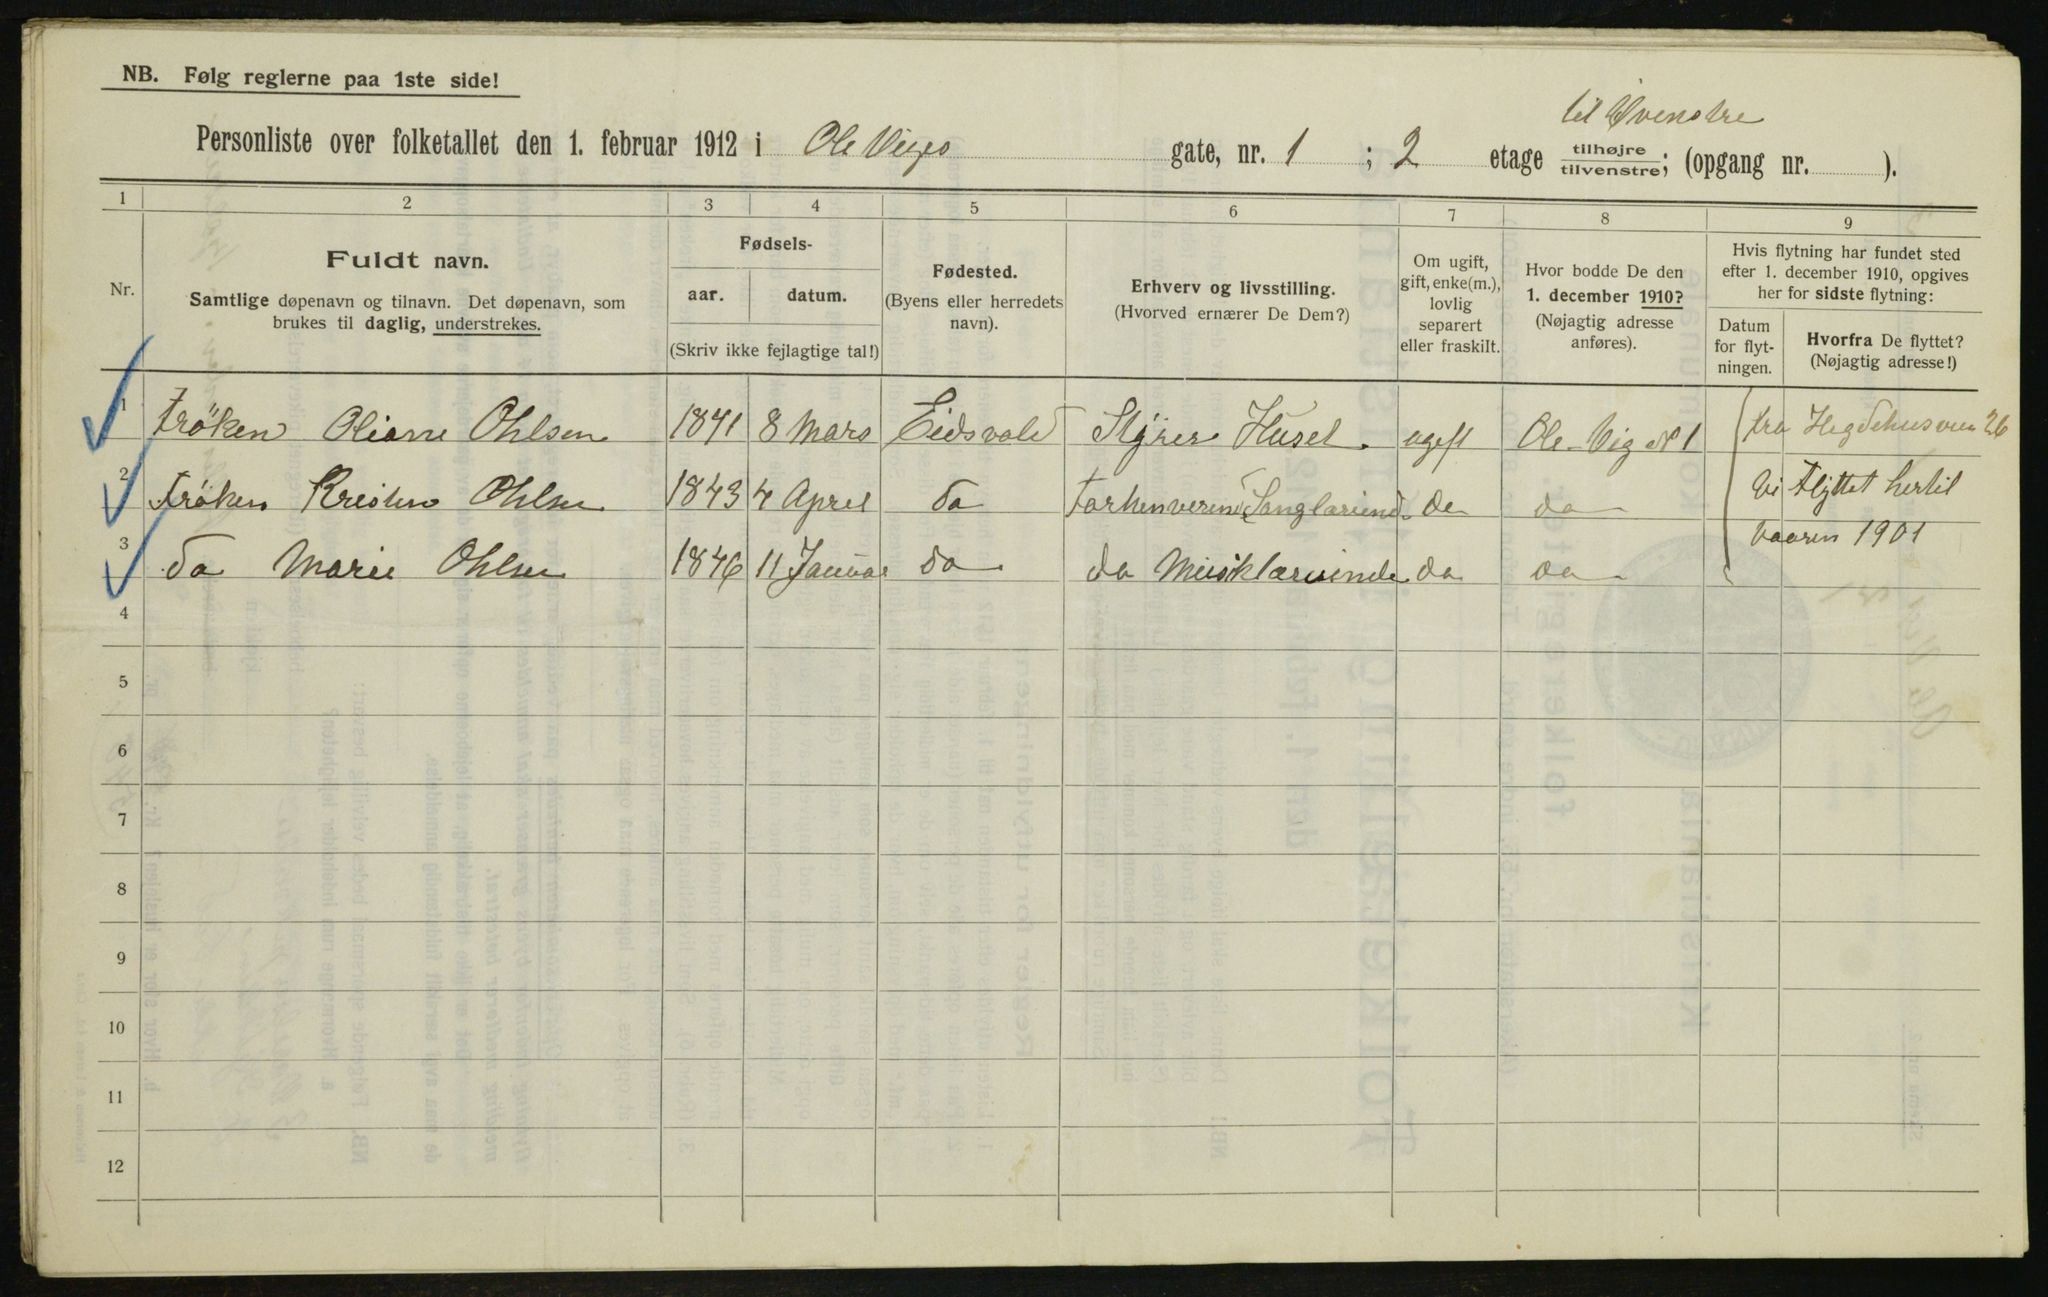 NB. Følg reglerne paa 1ste side!
til Venstre
Personliste over folketallet den 1. februar 1912 i Ole Viges gate, nr. 1 ; 2 etage tilhøjre/tilvenstre; (opgang nr. ).
1 2 3 4 5 6 7 8 9
Nr.
Fuldt navn.
Samtlige døpenavn og tilnavn. Det døpenavn, som
brukes til daglig, understrekes.
Fødsels-
aar. datum.
(Skriv ikke fejlagtige tal!)
Fødested.
(Byens eller herredets
navn).
Erhverv og livsstilling.
(Hvorved ernærer De Dem?)
Om ugift,
gift, enke(m.),
lovlig
separert
eller fraskilt.
Hvor bodde De den
1. december 1910?
(Nøjagtig adresse
anføres).
Hvis flytning har fundet sted
efter 1. december 1910, opgives
her for sidste flytning:
Datum
for flyt-
ningen.
Hvorfra De flyttet?
(Nøjagtig adresse!)
1 Frøken Oliane Ohlsen 1841 8 Mars Eidsvold Styrer Huset. ugift Ole Vig № 1 fra Hegdehusveien 26
2 Frøken Kristen Ohlsen 1843 4 April do Sanglærind. do do Vi Flyttet hertil
vaaren 1901
3 do Marie Ohlsen 1846 11 Januar do do Musiklærerinde do do
4
5
6
7
8
9
10
11
12